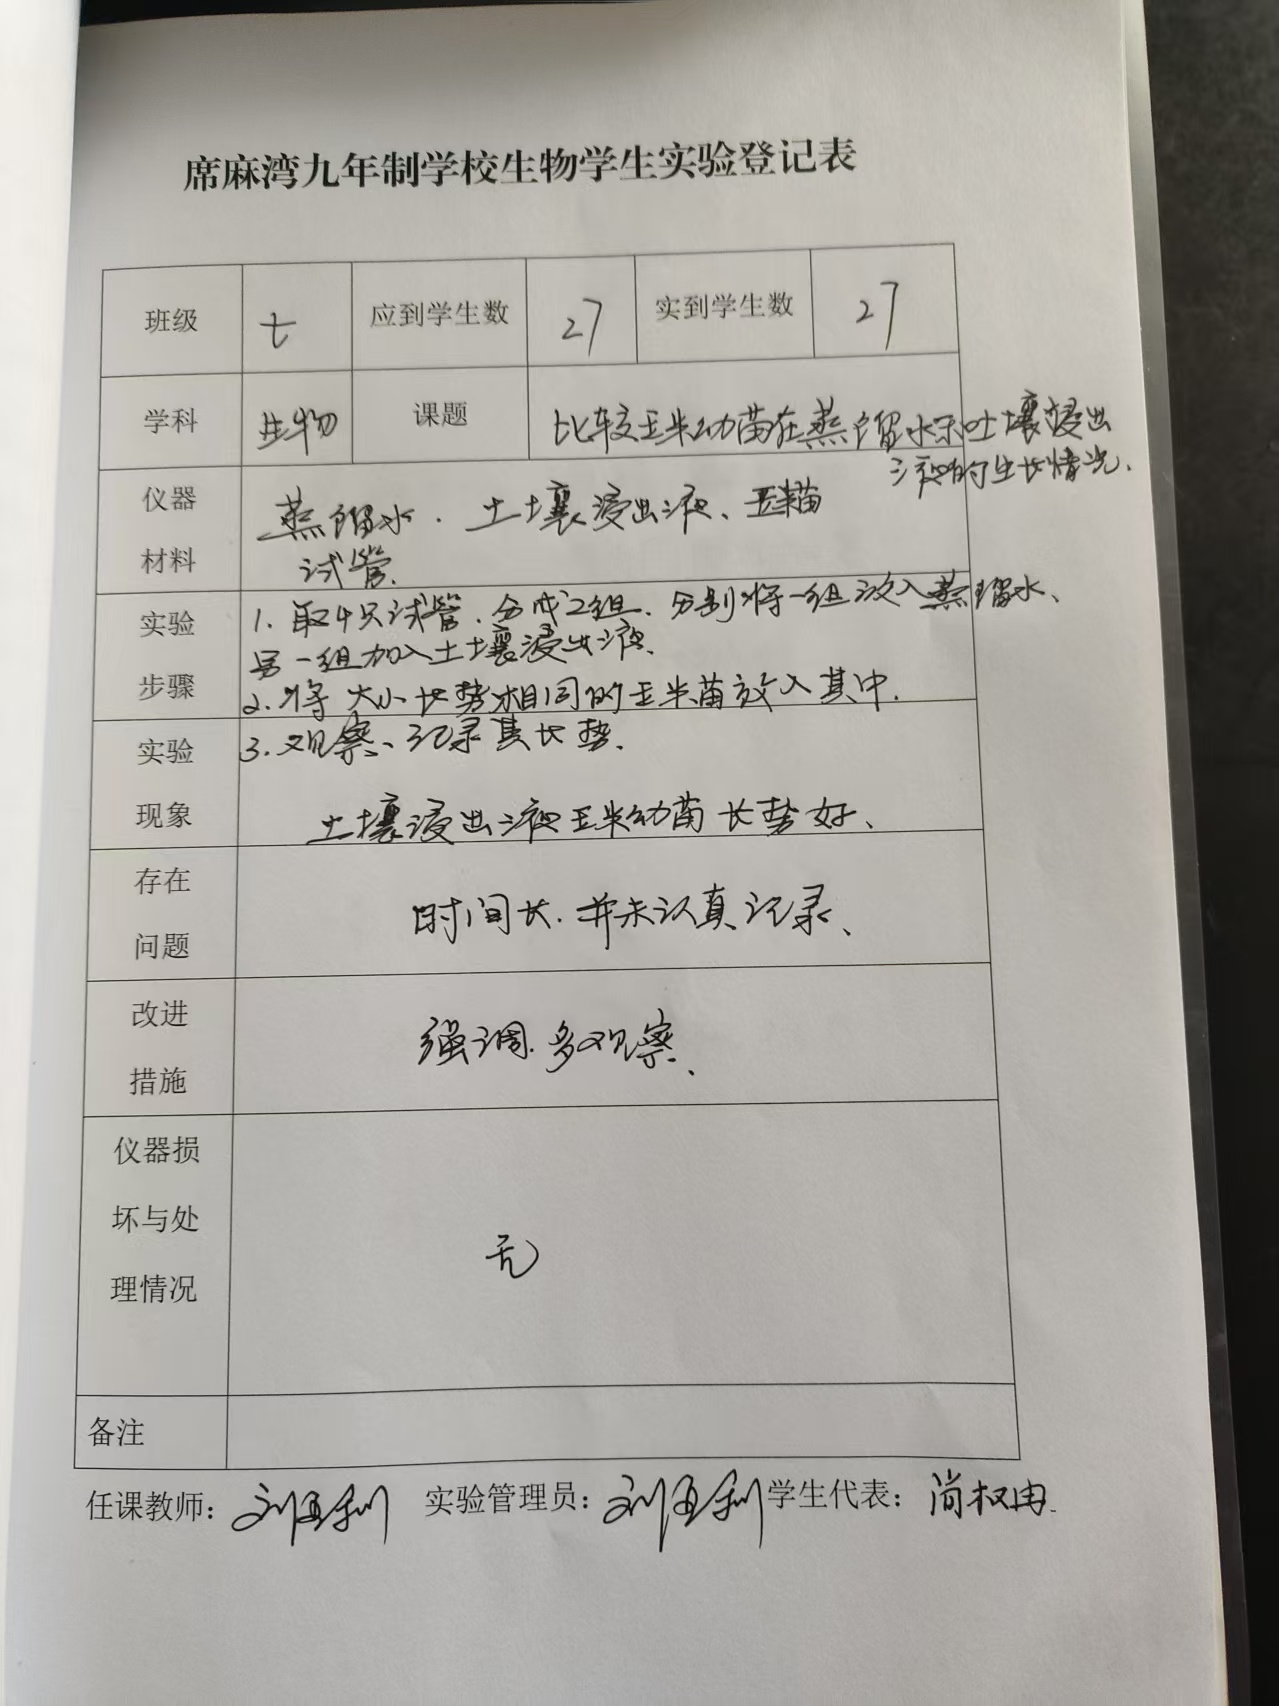 席麻湾九年制学校生物学生实验登记表
班级 七 应到学生数 27 实到学生数 27
学科 生物 课题 比较玉米幼苗在蒸馏水和土壤浸出
液的生长情况.
仪器 蒸馏水、土壤浸出液、玉米苗
材料 试管.
实验 1. 取4只试管、分成2组、分别将一组放入蒸馏水、
另一组加入土壤浸出液.
步骤 2. 将大小长势相同的玉米苗放入其中.
实验 3. 观察、记录其长势.
现象 土壤浸出液玉米幼苗长势好、
存在
问题 时间长.并未认真记录、
改进
措施 强调.多观察、
仪器损
坏与处
理情况 无
备注
任课教师: 实验管理员: 学生代表: